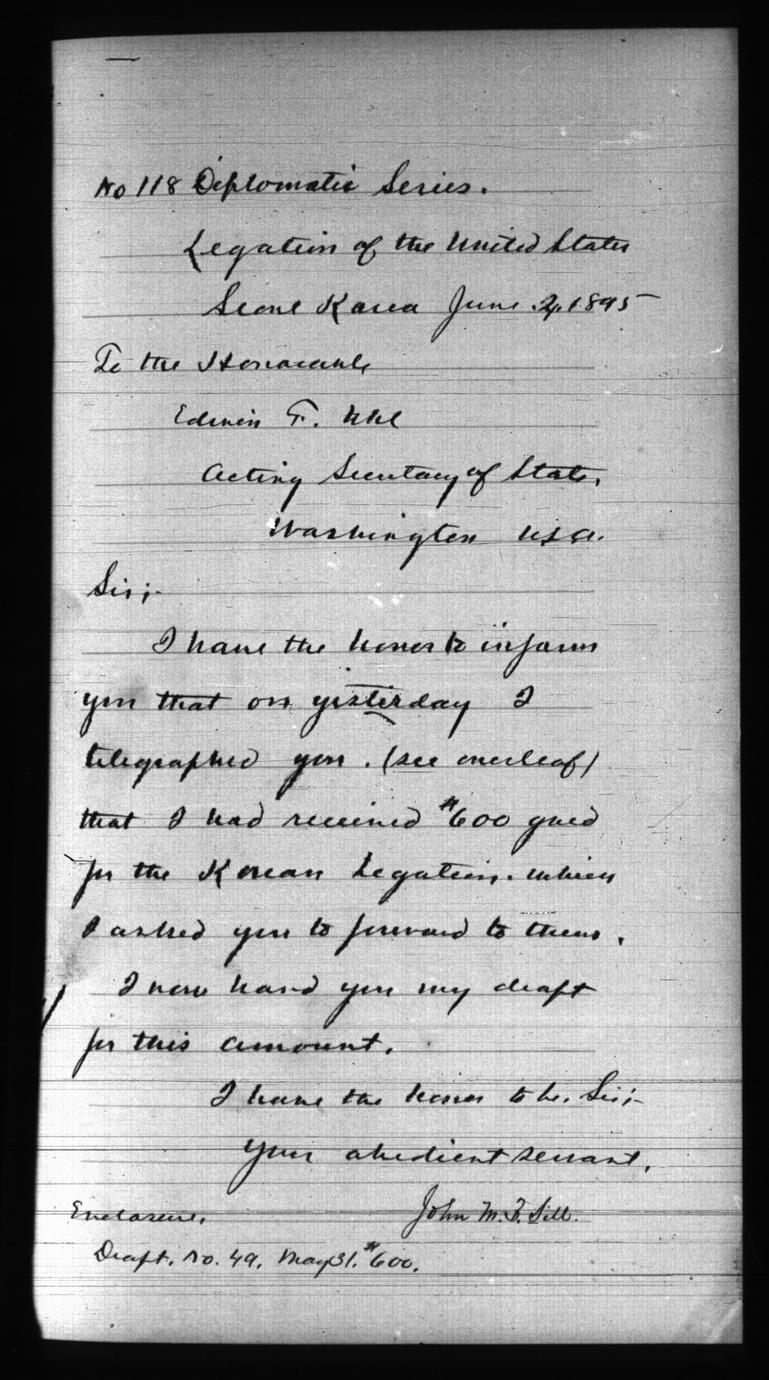 No 118 Diplomatic Series.
Legation of the United States
Seoul Korea June 2, 1895
To the Honorable
Edwin F. Uhl
Acting Secretary of State,
Washington U.S.A.
Sir;-
I have the honor to inform
you that on yesterday I
telegraphed you. (see overleaf)
that I had received $600 gold
for the Korean Legation. which
I asked you to forward to them.
I now hand you my draft
for this amount.
I have the honor to be. Sir;-
Your obedient servant,
Enclosure. John M. B. Sill.
Draft. No. 49. May 31. $600.